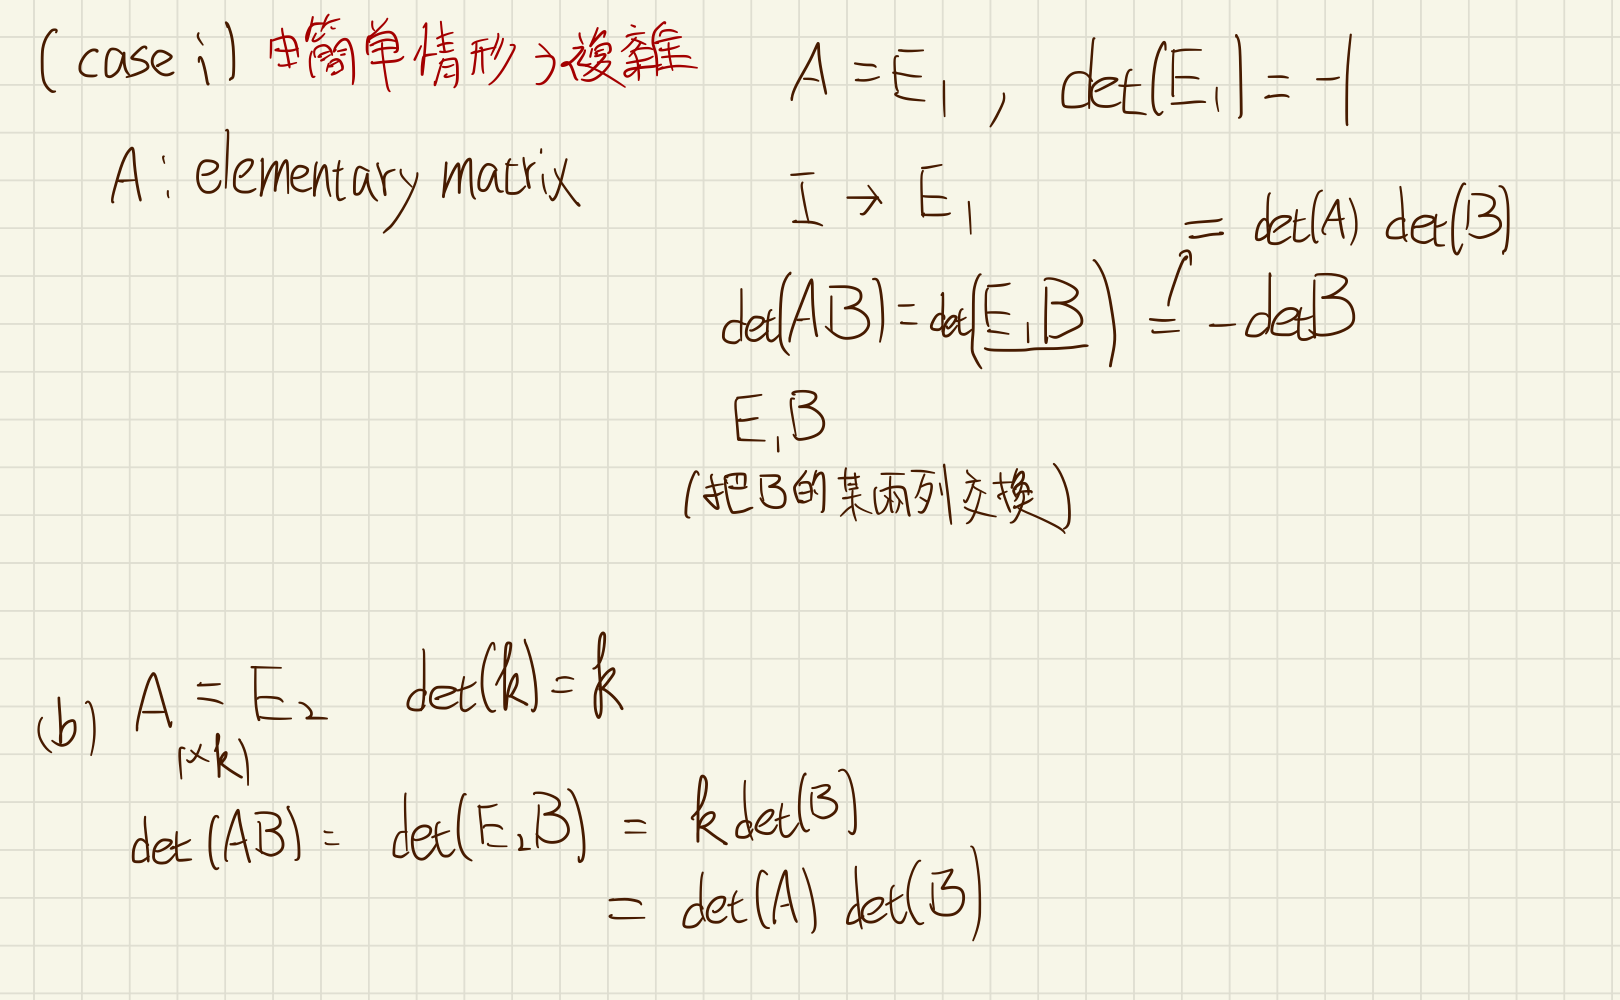 (case i) 由簡单情形→複雜
A : elementary matrix
A = E₁ , det(E₁) = -1
I → E₁
= det(A) det(B)
det(AB) = det(E₁B) = -detB
E₁B
(把B的某兩列交換)
(b) A = E₂ det(k) = k
(×k)
det(AB) = det(E₂B) = k det(B)
= det(A) det(B)